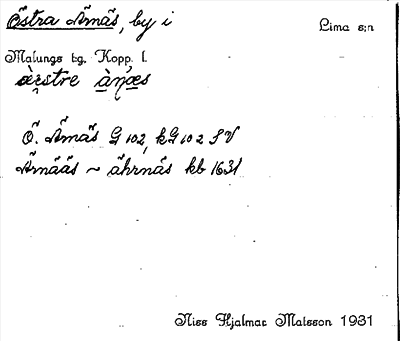 Östra Ärnäs, by i
Lima s:n
Malungs tg. Kopp. l.
æ̀stre æ̀ɳæs
Ö. Ärnäs G 102, kG 102 SV
Ärnääs ~ ährnäs kb 1631
Niss Hjalmar Matsson 1931